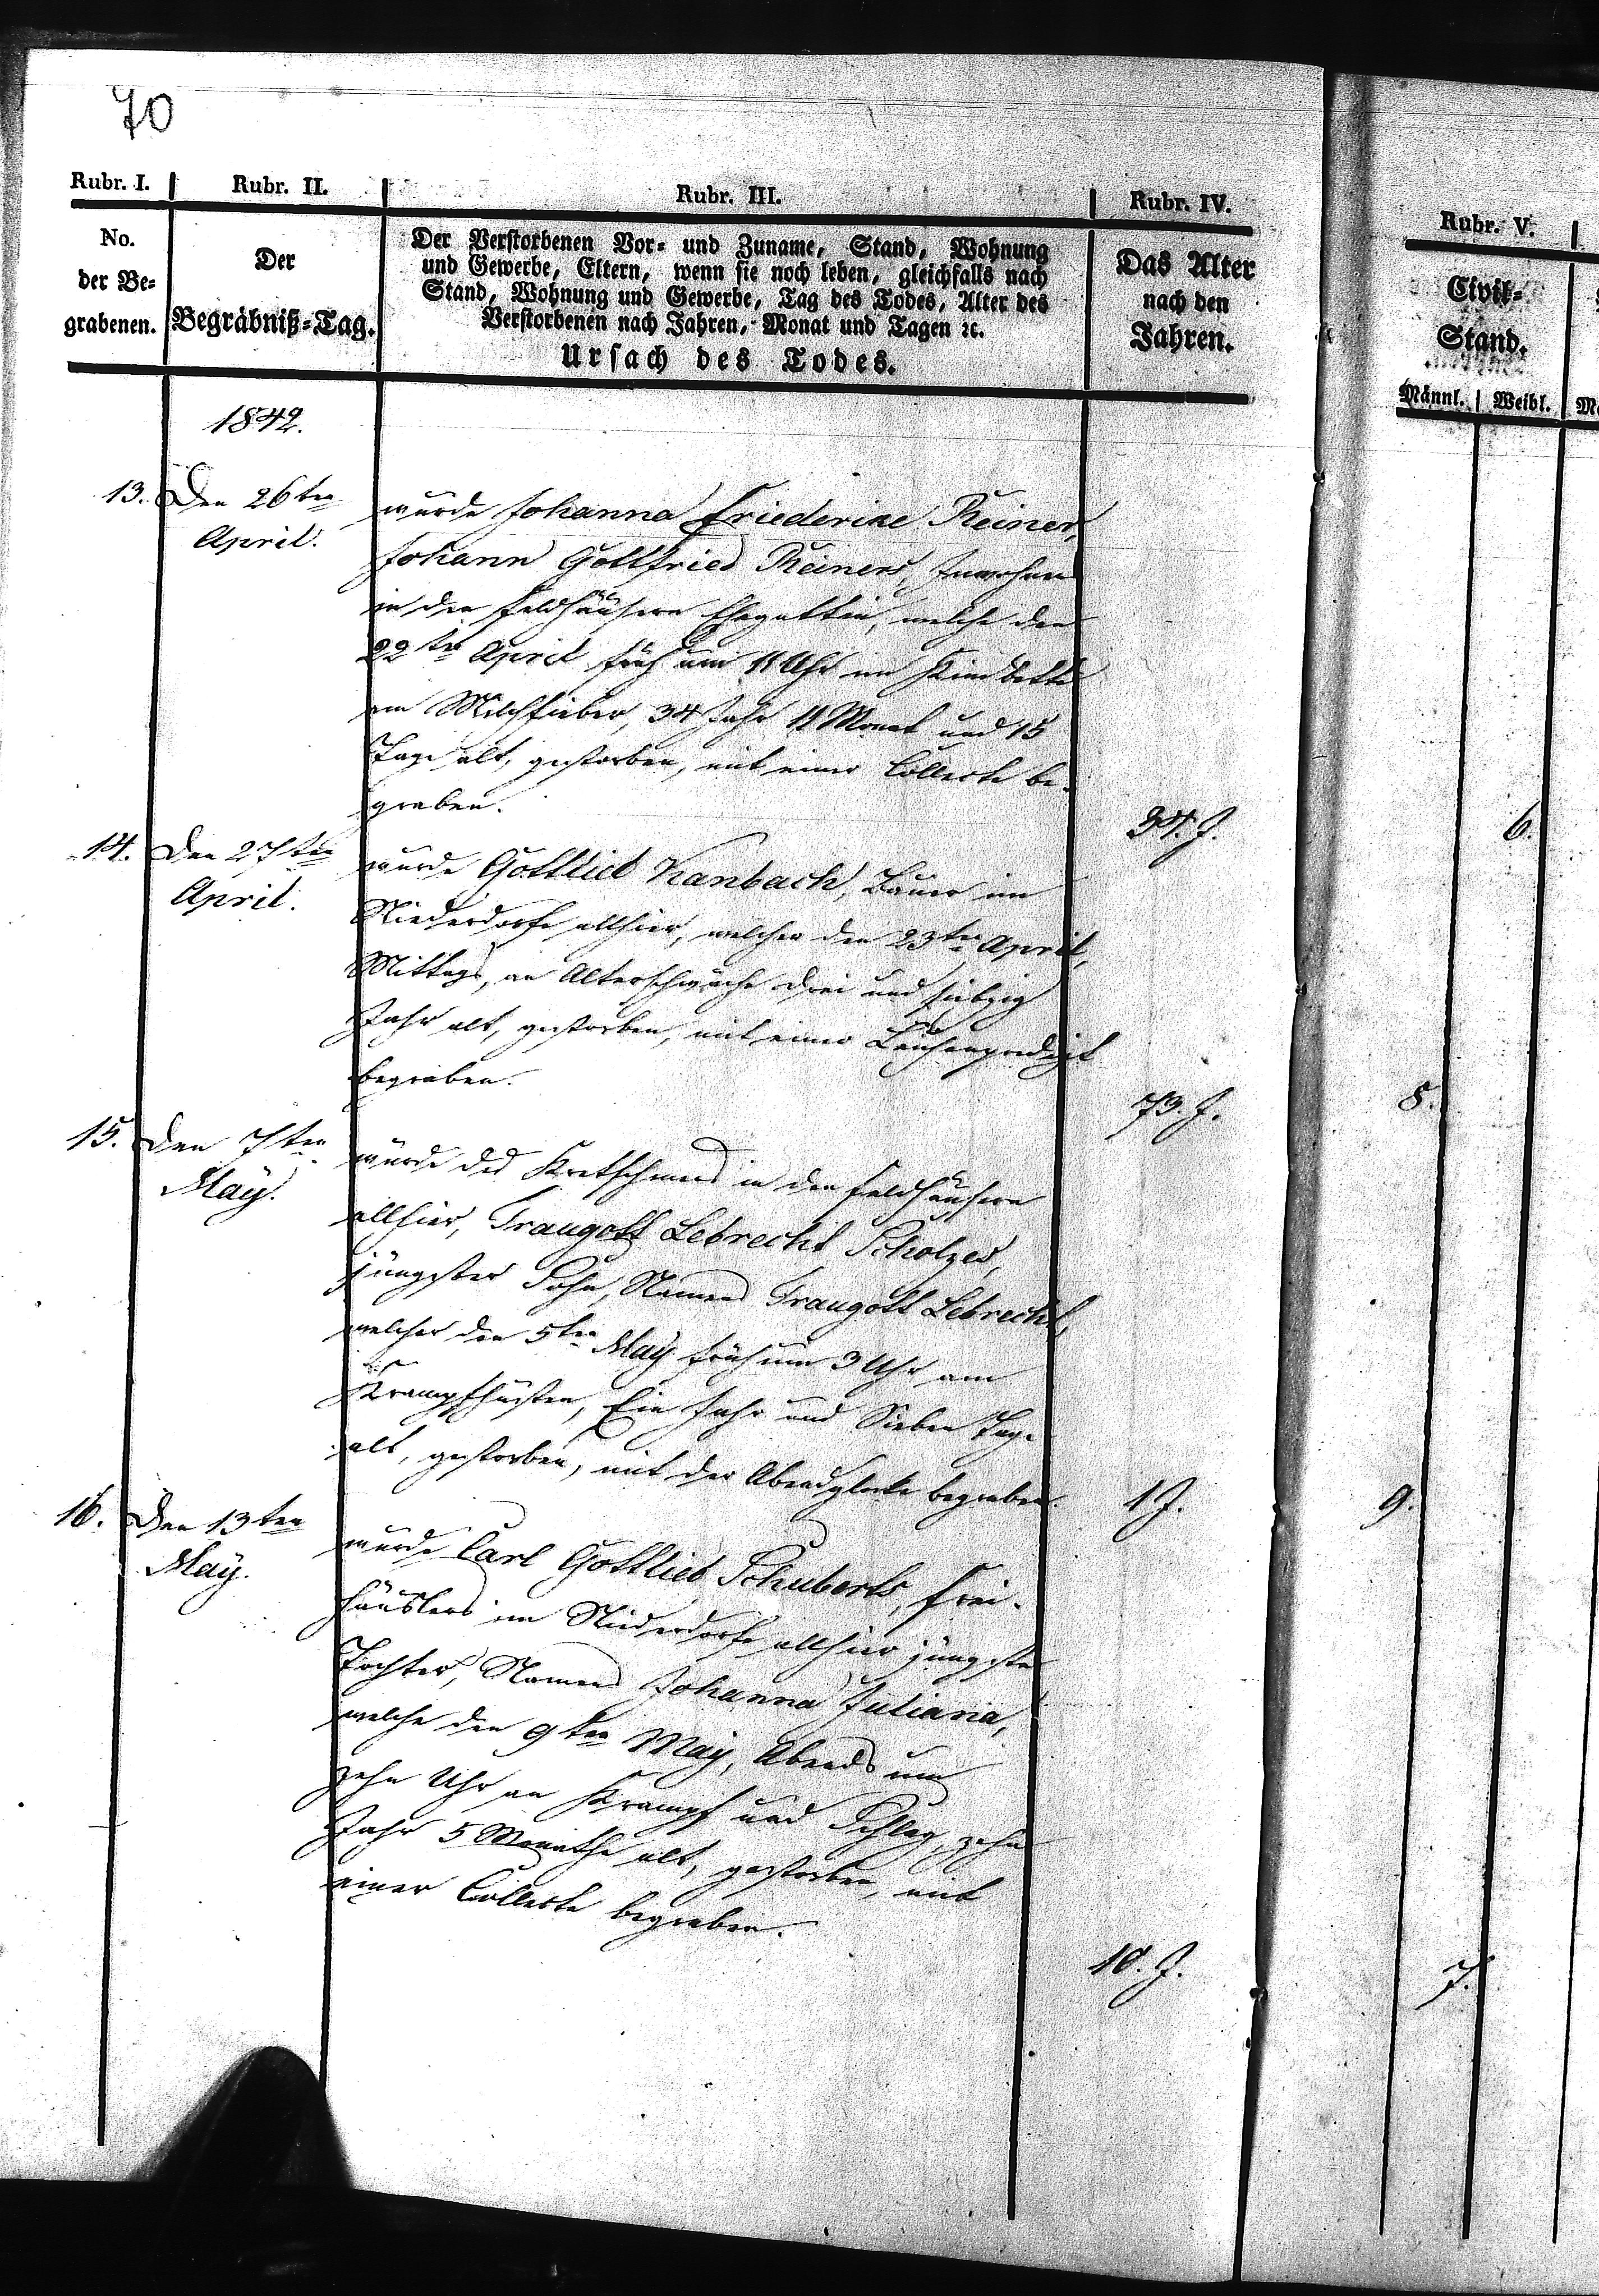 70
Rubr. I. Rubr. II. Rubr. III. Rubr. IV. Rubr. V.
No.
der Be-
grabenen.
Der
Begräbniß-Tag.
Der Verstorbenen Vor- und Zuname, Stand, Wohnung
und Gewerbe, Eltern, wenn sie noch leben, gleichfalls nach
Stand, Wohnung und Gewerbe, Tag des Todes, Alter des
Verstorbenen nach Jahren, Monat und Tagen ꝛc.
Ursach des Todes.
Das Alter
nach den
Jahren.
Civil-
Stand.
Männl. Weibl.
1842.
13. Den 26ten
April.
wurde Johanna Friederike Reiner,
Johann Gottfried Reiners, Inwohners
in den Feldhäusern Ehegattin, welche den
22ten April früh um 11 Uhr im Kindbette
am Milchfieber, 34 Jahr 11 Monat und 15
Tage alt, gestorben, mit einer Collecte be-
graben.
34. J. 6.
14. Den 27ten
April.
wurde Gottlieb Kanbach, Bauer im
Niederdorfe allhier, welcher den 23ten April,
Mittags, an Alterschwäche drei und siebzig
Jahr alt, gestorben, mit einer Leichenpredigt
begraben.
73. J. 8.
15. Den 7ten
May.
wurde des Kretschmers in den Feldhäusern
allhier, Traugott Lebrecht Scholzes,
jüngster Sohn, Namens Traugott Lebrecht,
welcher den 5ten May früh um 3 Uhr am
Krampfhusten, Ein Jahr und Sieben Tage
alt, gestorben, mit der Abendglocke begraben.
1 J. 9.
16. Den 13ten
May.
wurde Carl Gottlieb Schuberts, Frei-
häuslers im Niederdorfe allhier jüngste
Tochter, Namens Johanna Juliana,
welche den 9ten May, Abends um
zehn Uhr an Krampf und Schlag, zehn
Jahr 5 Monathe alt, gestorben, mit
einer Collecte begraben.
10. J. 7.